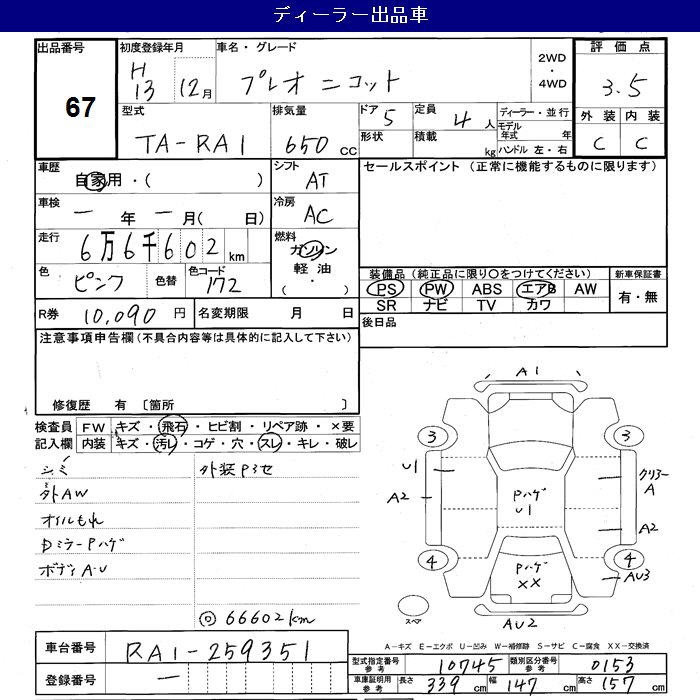 ディーラー出品車
出品番号 67
初度登録年月 H13 12月
車名・グレード プレオ ニコット
2WD・4WD
評価点 3.5
外装 C 内装 C
型式 TA-RA1
排気量 650 cc
ドア 5
形状
定員 4人
積載 kg
ディーラー・並行
モデル年式 年
ハンドル 左・右
車歴 自家用・( )
シフト AT
セールスポイント (正常に機能するものに限ります)
車検 ー年 ー月( 日)
冷房 AC
走行 6万6千602 km
燃料 ガソリン 軽油 ( ・ )
色 ピンク
色替
色コード 172
装備品 (純正品に限り○をつけてください)
PS PW ABS エアB AW
SR ナビ TV カワ
新車保証書 有・無
R券 10,090円
名変期限 月 日
後日品
注意事項申告欄 (不具合内容等は具体的に記入して下さい)
修復歴 有 〔箇所 〕
検査員記入欄
FW キズ・飛石・ヒビ割・リペア跡・×要
内装 キズ・汚レ・コゲ・穴・スレ・キレ・破レ
シミ
外AW
オイルもれ
DミラーPハゲ
ボディA-U
外装Pヨセ
◎ 66602km
A1
3
3
U1
A2
Pハゲ
U1
クリヤー
A
A2
4
4
Pハゲ
XX
AU3
スペア
AU2
A-キズ E-エクボ U-凹み W-補修跡 S-サビ C-腐食 XX-交換済
車台番号 RA1-259351
登録番号 ー
型式指定番号 参考 10745
類別区分番号 参考 0153
車庫証明用 参考 長さ 339 cm 幅 147 cm 高さ 157 cm